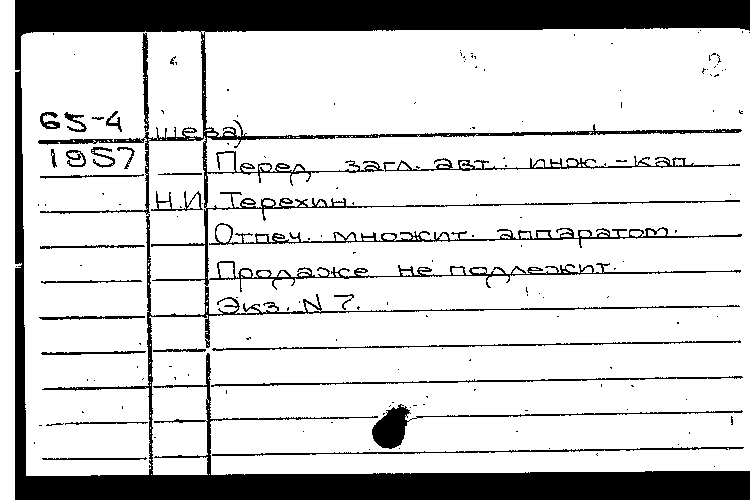 2
65-4 шева)
1957 Перед загл. авт.: инж.-кап.
Н.И. Терехин.
Отпеч. множит. аппаратом.
Продаже не подлежит.
Экз. N 7.